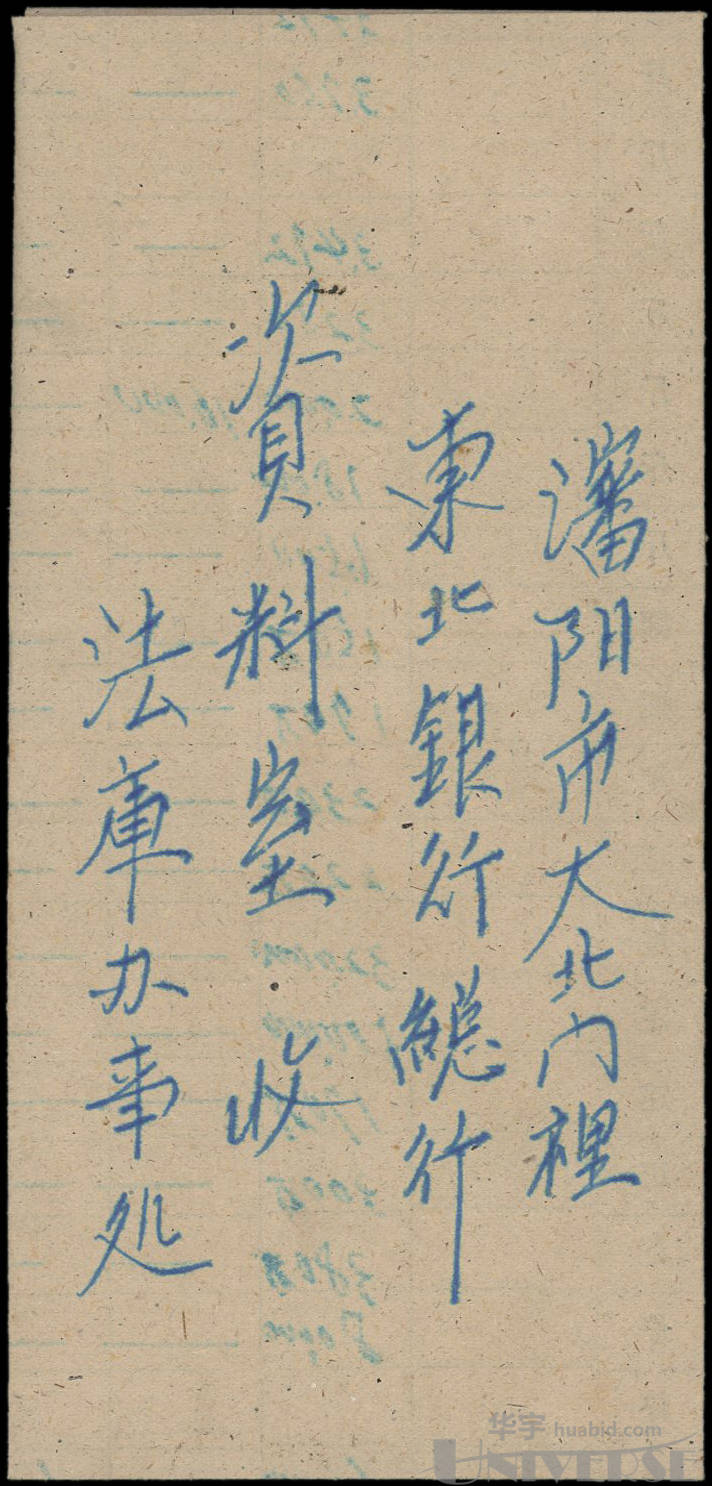 瀋阳市大北门裡
東北銀行總行
資料室 收
法庫办事处
华宇 huabid.com
UNIVERSE